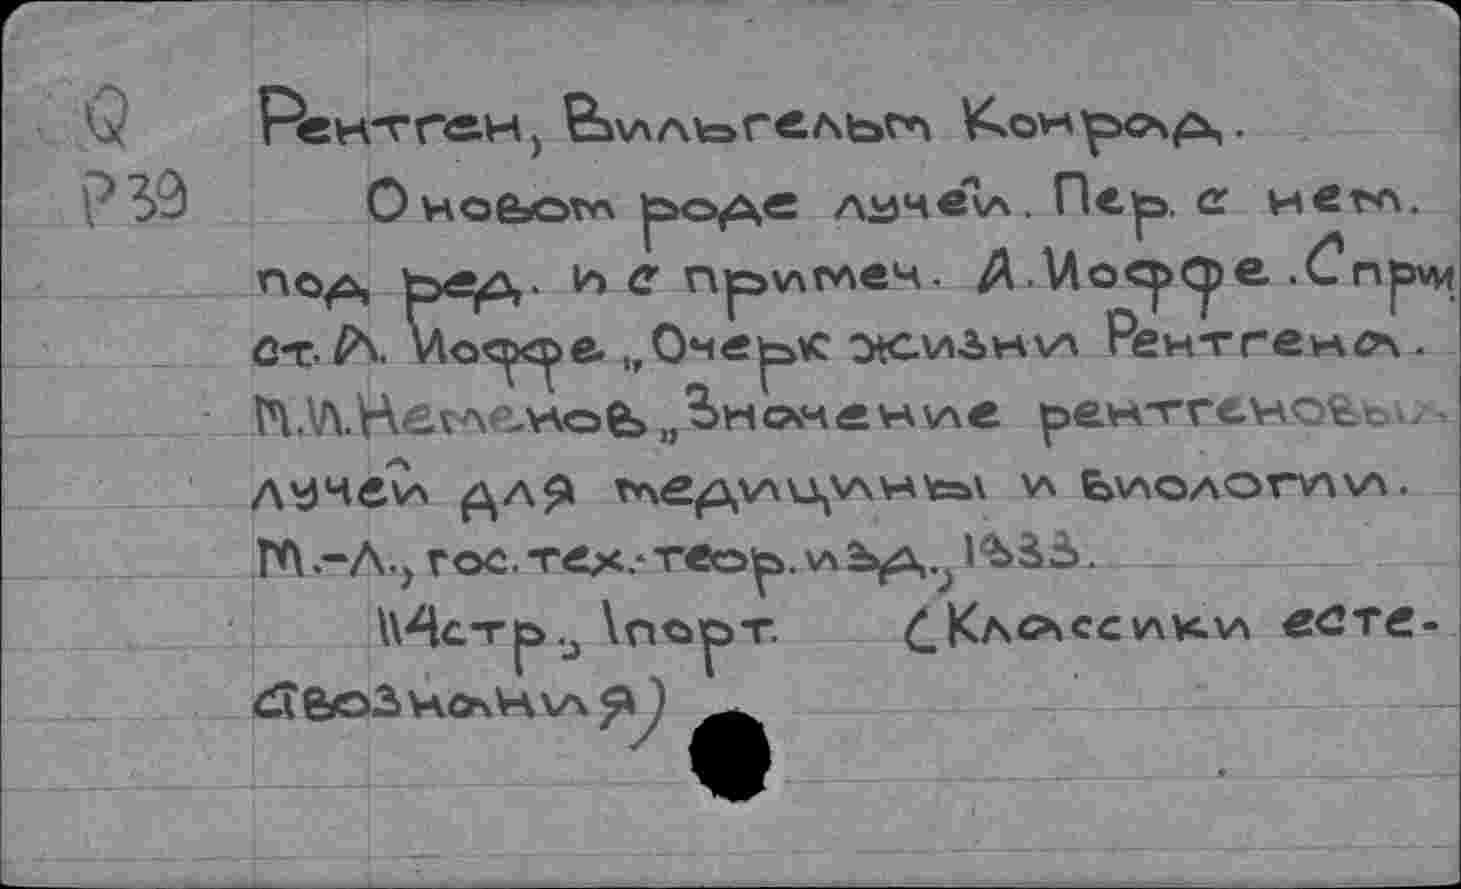 Q Рентген, Вильгельм Конрад.
Р39 О новом роде лучей. Пер. с нем.
под ред. и с примеч. А. Иоффе. С прим
ст. А. Иоффе „Очерк жизни Рентгена.
М.И. Неменов „Значение рентгеновых
лучей для медицины и биологии.
М.-Л., гос. тех.-теор. изд., 1933.
114стр., 1порт. (Классики есте-
ствознания)